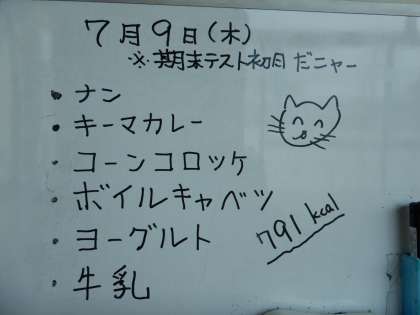 7月9日(木)
※期末テスト初日だニャー
• ナン
• キーマカレー
• コーンコロッケ
• ボイルキャベツ
• ヨーグルト
• 牛乳
791kcal